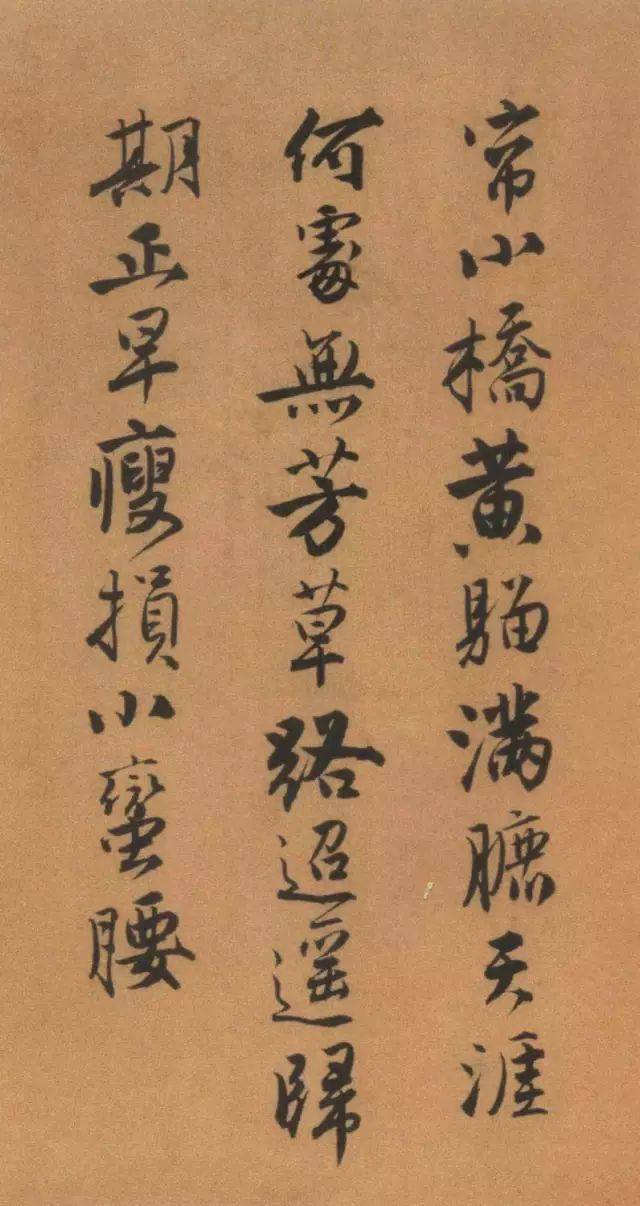 帘小橋黄满天涯
何處無芳草路迢遥歸
期正早瘦損小蠻腰